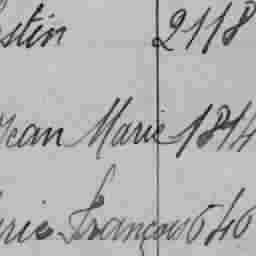 stin 2118
Jean Marie 1814
rie François 646